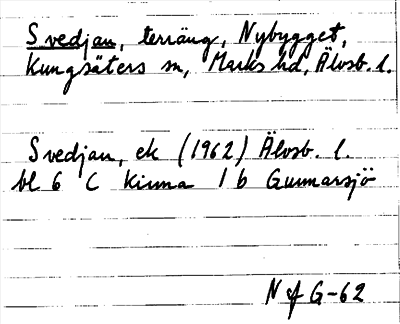 Svedjan, terräng, Nybygget,
Kungsäters sn, Marks hd, Älvsb. l.
Svedjan, ek (1962) Älvsb. l.
bl 6 C Kinna 1 b Gunnarsjö
N of G-62